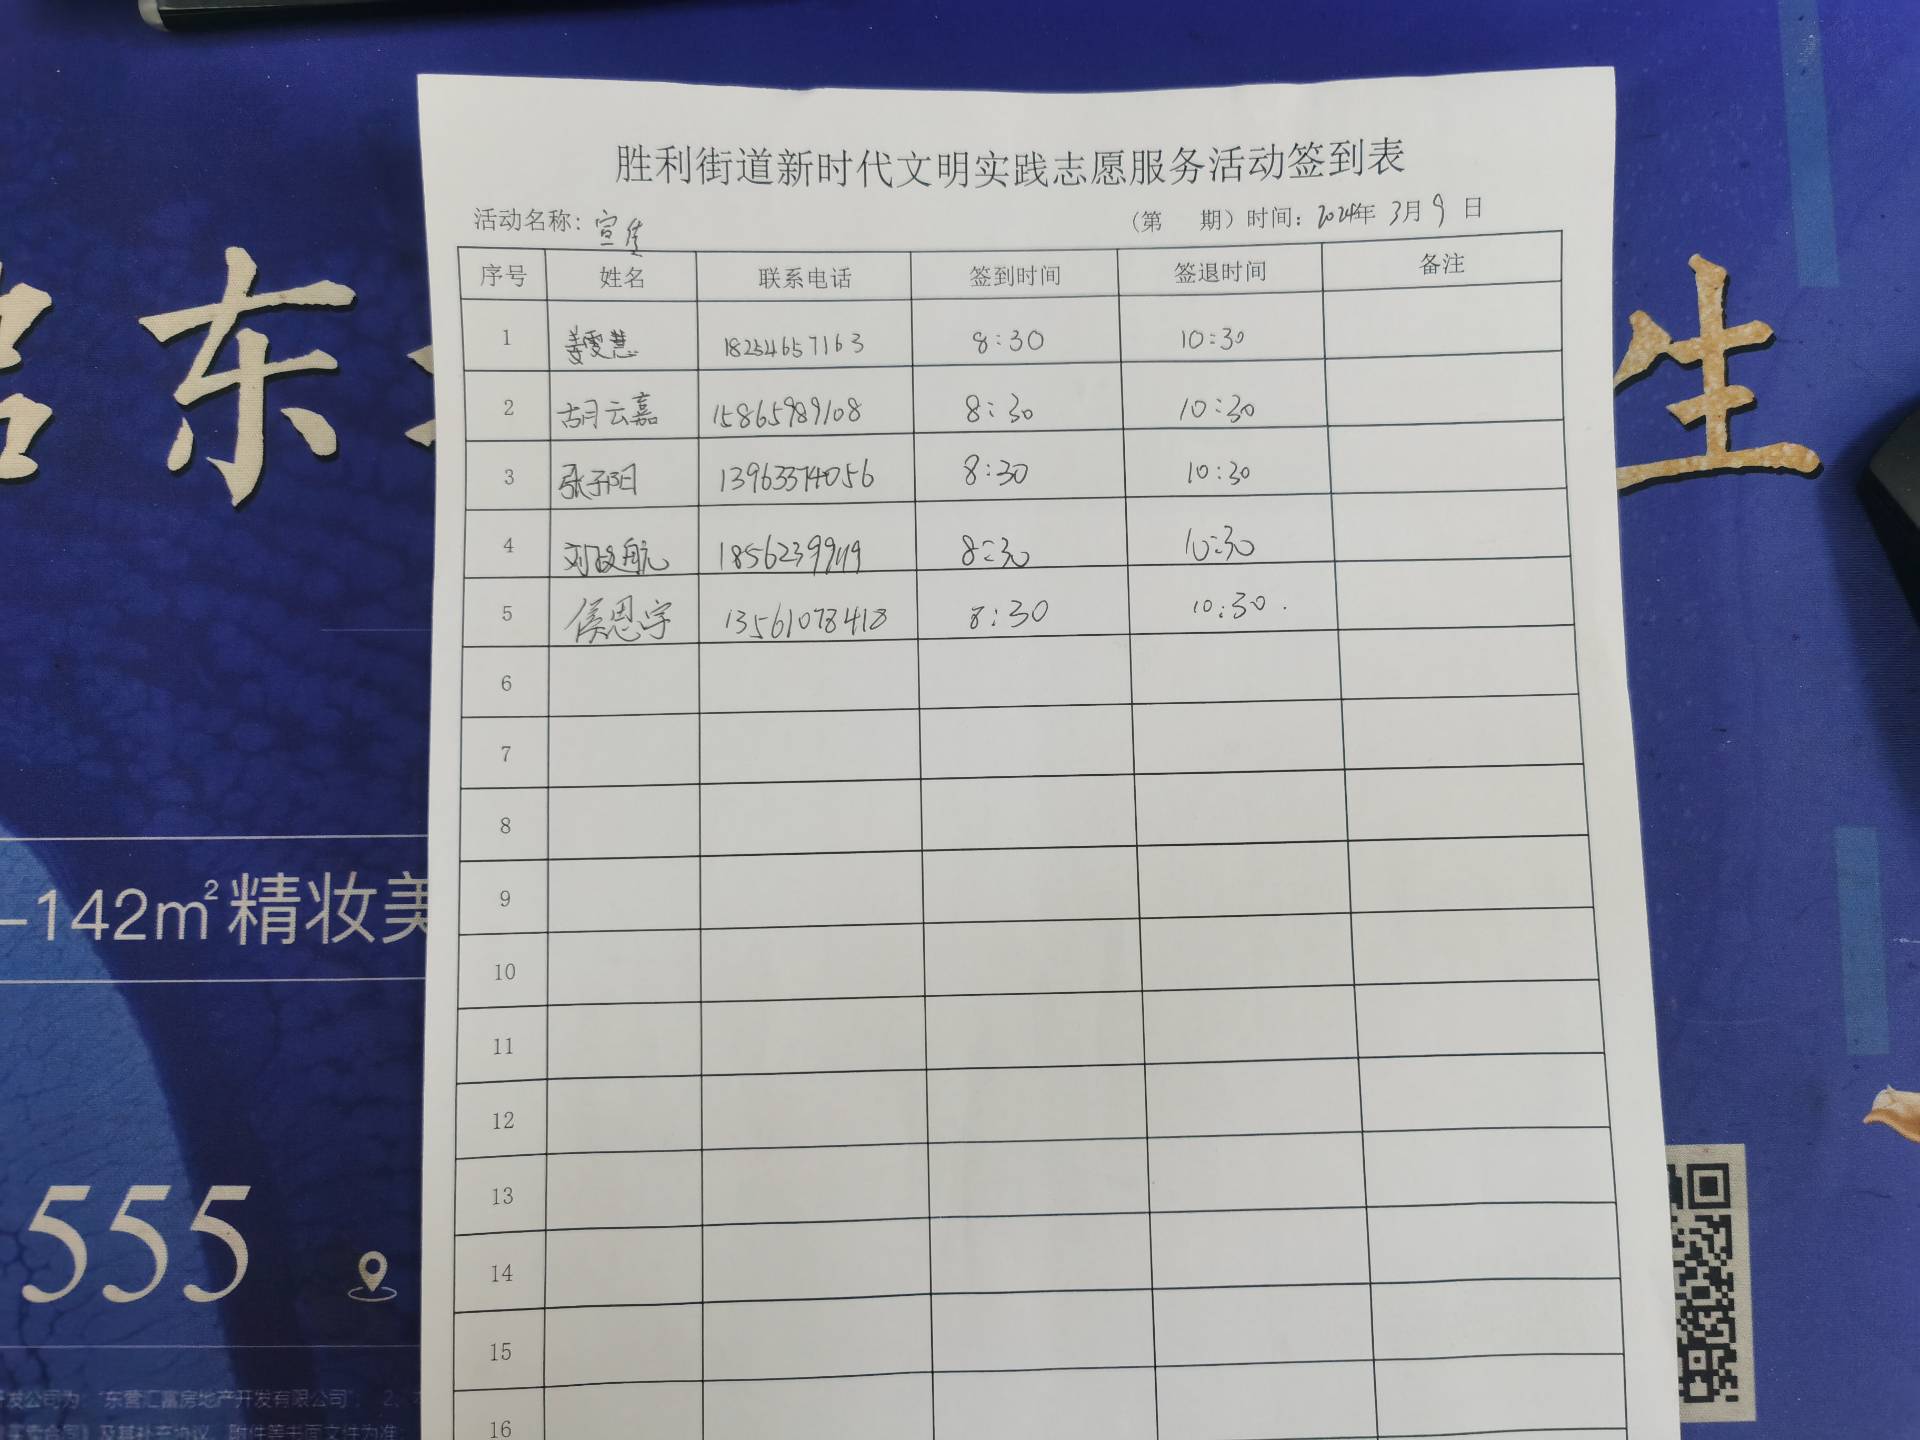 胜利街道新时代文明实践志愿服务活动签到表
活动名称: 宣传 (第 期) 时间: 2024年 3月 9 日
序号 姓名 联系电话 签到时间 签退时间 备注
1 姜雯慧 18254657163 8:30 10:30
2 胡云嘉 15865989108 8:30 10:30
3 张子阳 13963374056 8:30 10:30
4 航 8:30 10:30
5 侯恩宇 13561078418 8:30 10:30.
6
7
8
9
10
11
12
13
14
15
16
东
生
-142m²精妆美
555
开发公司为:"东营汇富房地产开发有限公司"。2、
及其补充协议、附件等书面文件为准